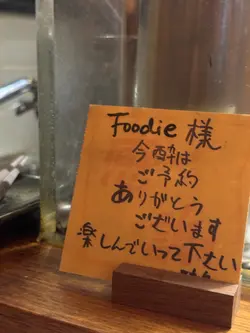 Foodie 様
今酔は
ご予約
ありがとう
ございます
楽しんでいって下さい